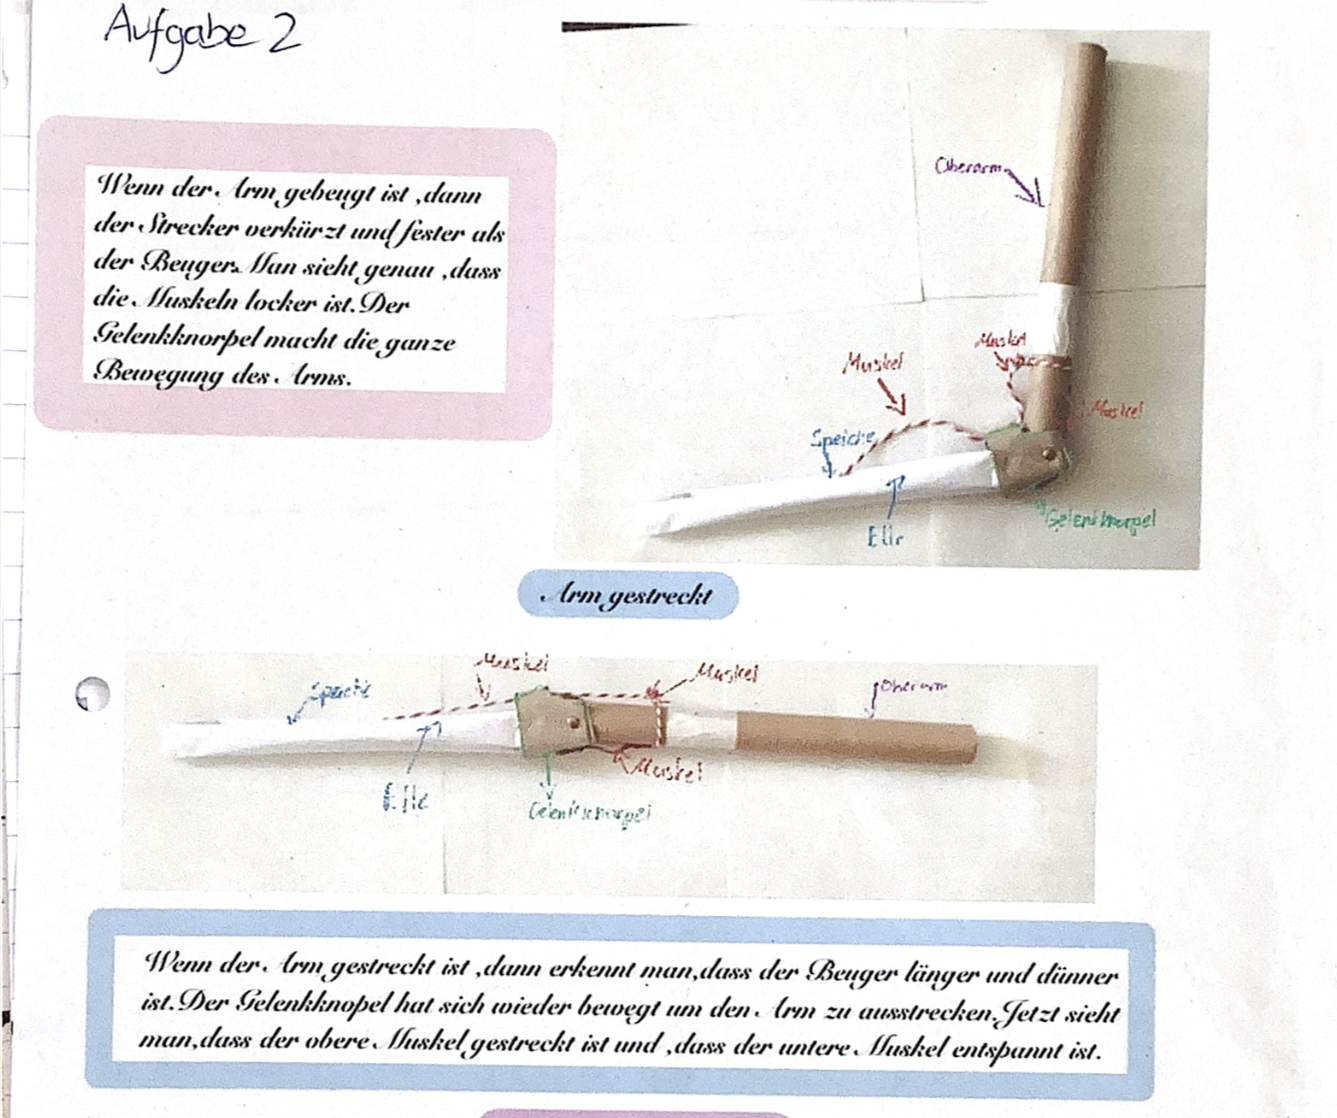 Aufgabe 2
Wenn der Arm gebeugt ist ,dann
der Strecker verkürzt und fester als
der Beuger. Man sieht genau ,dass
die Muskeln locker ist.Der
Gelenkknorpel macht die ganze
Bewegung des Arms.
Oberarm
Muskel
Muskel
Muskel
Speiche
Elle
Gelenkknorpel
Arm gestreckt
Muskel
Muskel
Speiche
Oberarm
Muskel
Elle
Gelenkknorpel
Wenn der Arm gestreckt ist ,dann erkennt man,dass der Beuger länger und dünner
ist.Der Gelenkknopel hat sich wieder bewegt um den Arm zu ausstrecken.Jetzt sieht
man,dass der obere Muskel gestreckt ist und ,dass der untere Muskel entspannt ist.